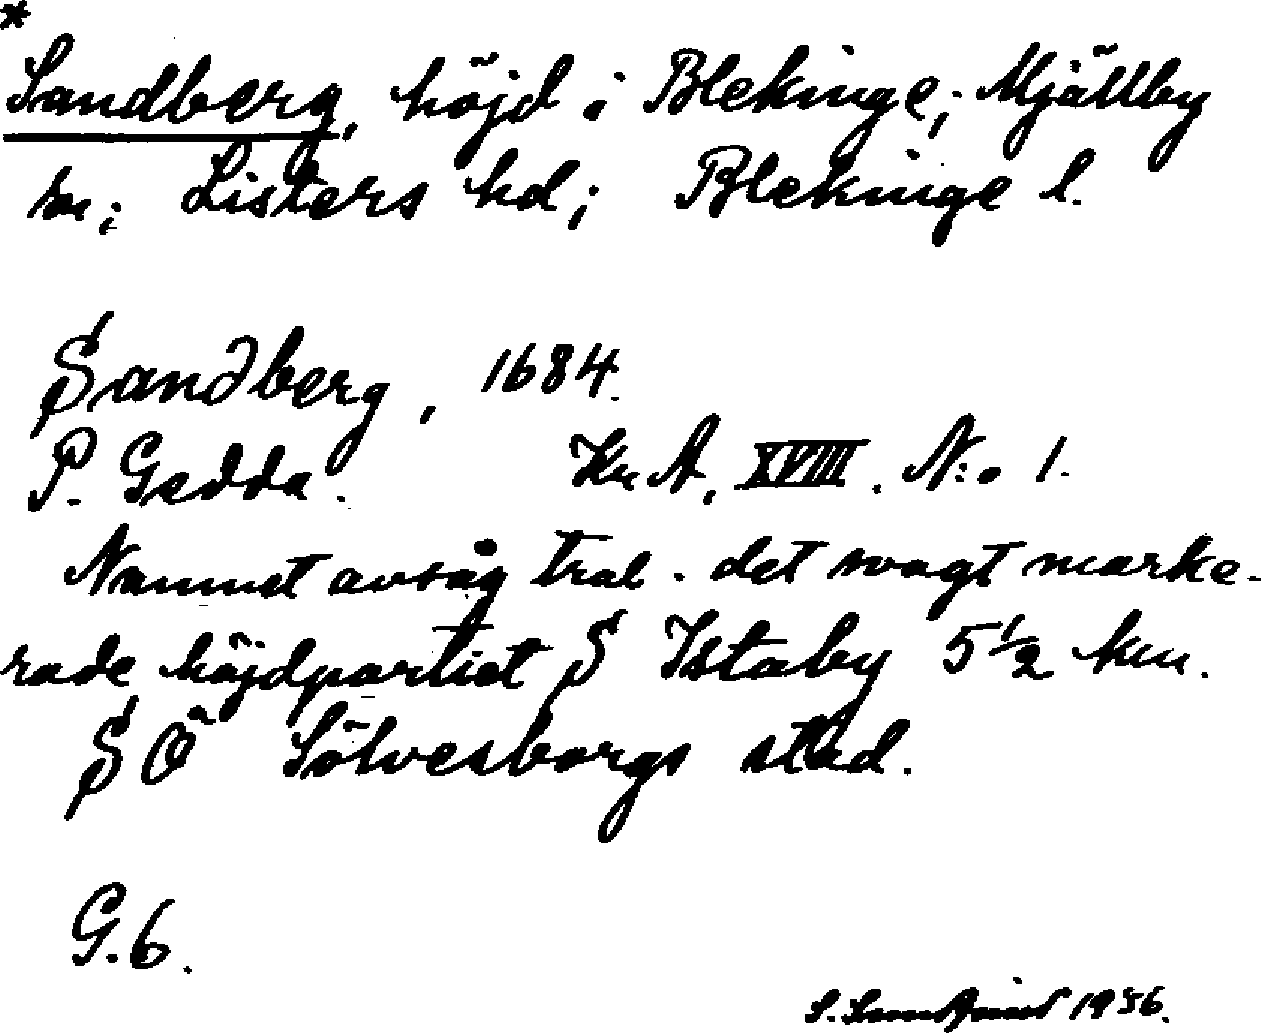 *
Sandberg, höjd i Blekinge; Mjällby
sn; Listers hd; Blekinge l.
Sandberg, 1684.
P. Gedda. Kr A, XVIII. N:o 1.
Namnet avsåg trol. det svagt marke-
rade höjdpartiet S Istaby 5 1/2 km.
SÖ Sölvesborgs stad.
G.6.
S. 1936.